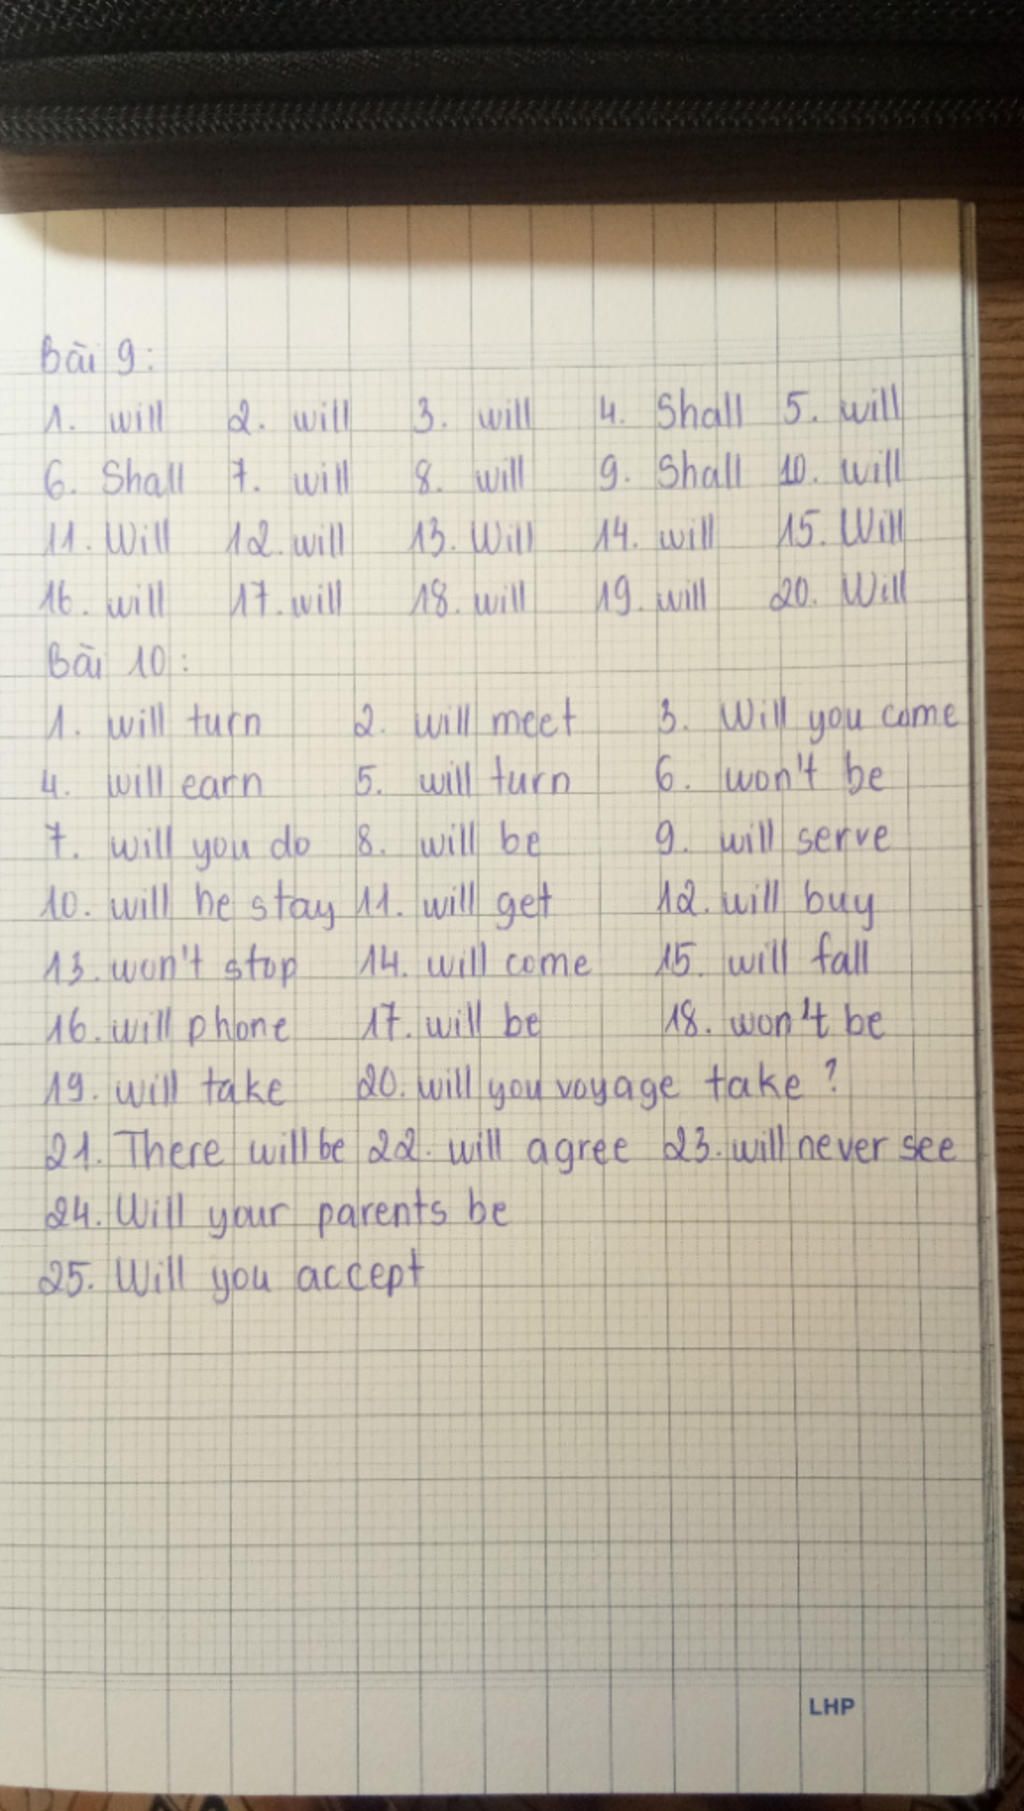 Bài 9:
1. will 2. will 3. will 4. Shall 5. will
6. Shall 7. will 8. will 9. Shall 10. will
11. Will 12. will 13. Will 14. will 15. Will
16. will 17. will 18. will 19. will 20. Will
Bài 10:
1. will turn 2. will meet 3. Will you come
4. will earn 5. will turn 6. won't be
7. will you do 8. will be 9. will serve
10. will he stay 11. will get 12. will buy
13. won't stop 14. will come 15. will fall
16. will phone 17. will be 18. won't be
19. will take 20. will you voyage take?
21. There will be 22. will agree 23. will never see
24. Will your parents be
25. Will you accept
LHP